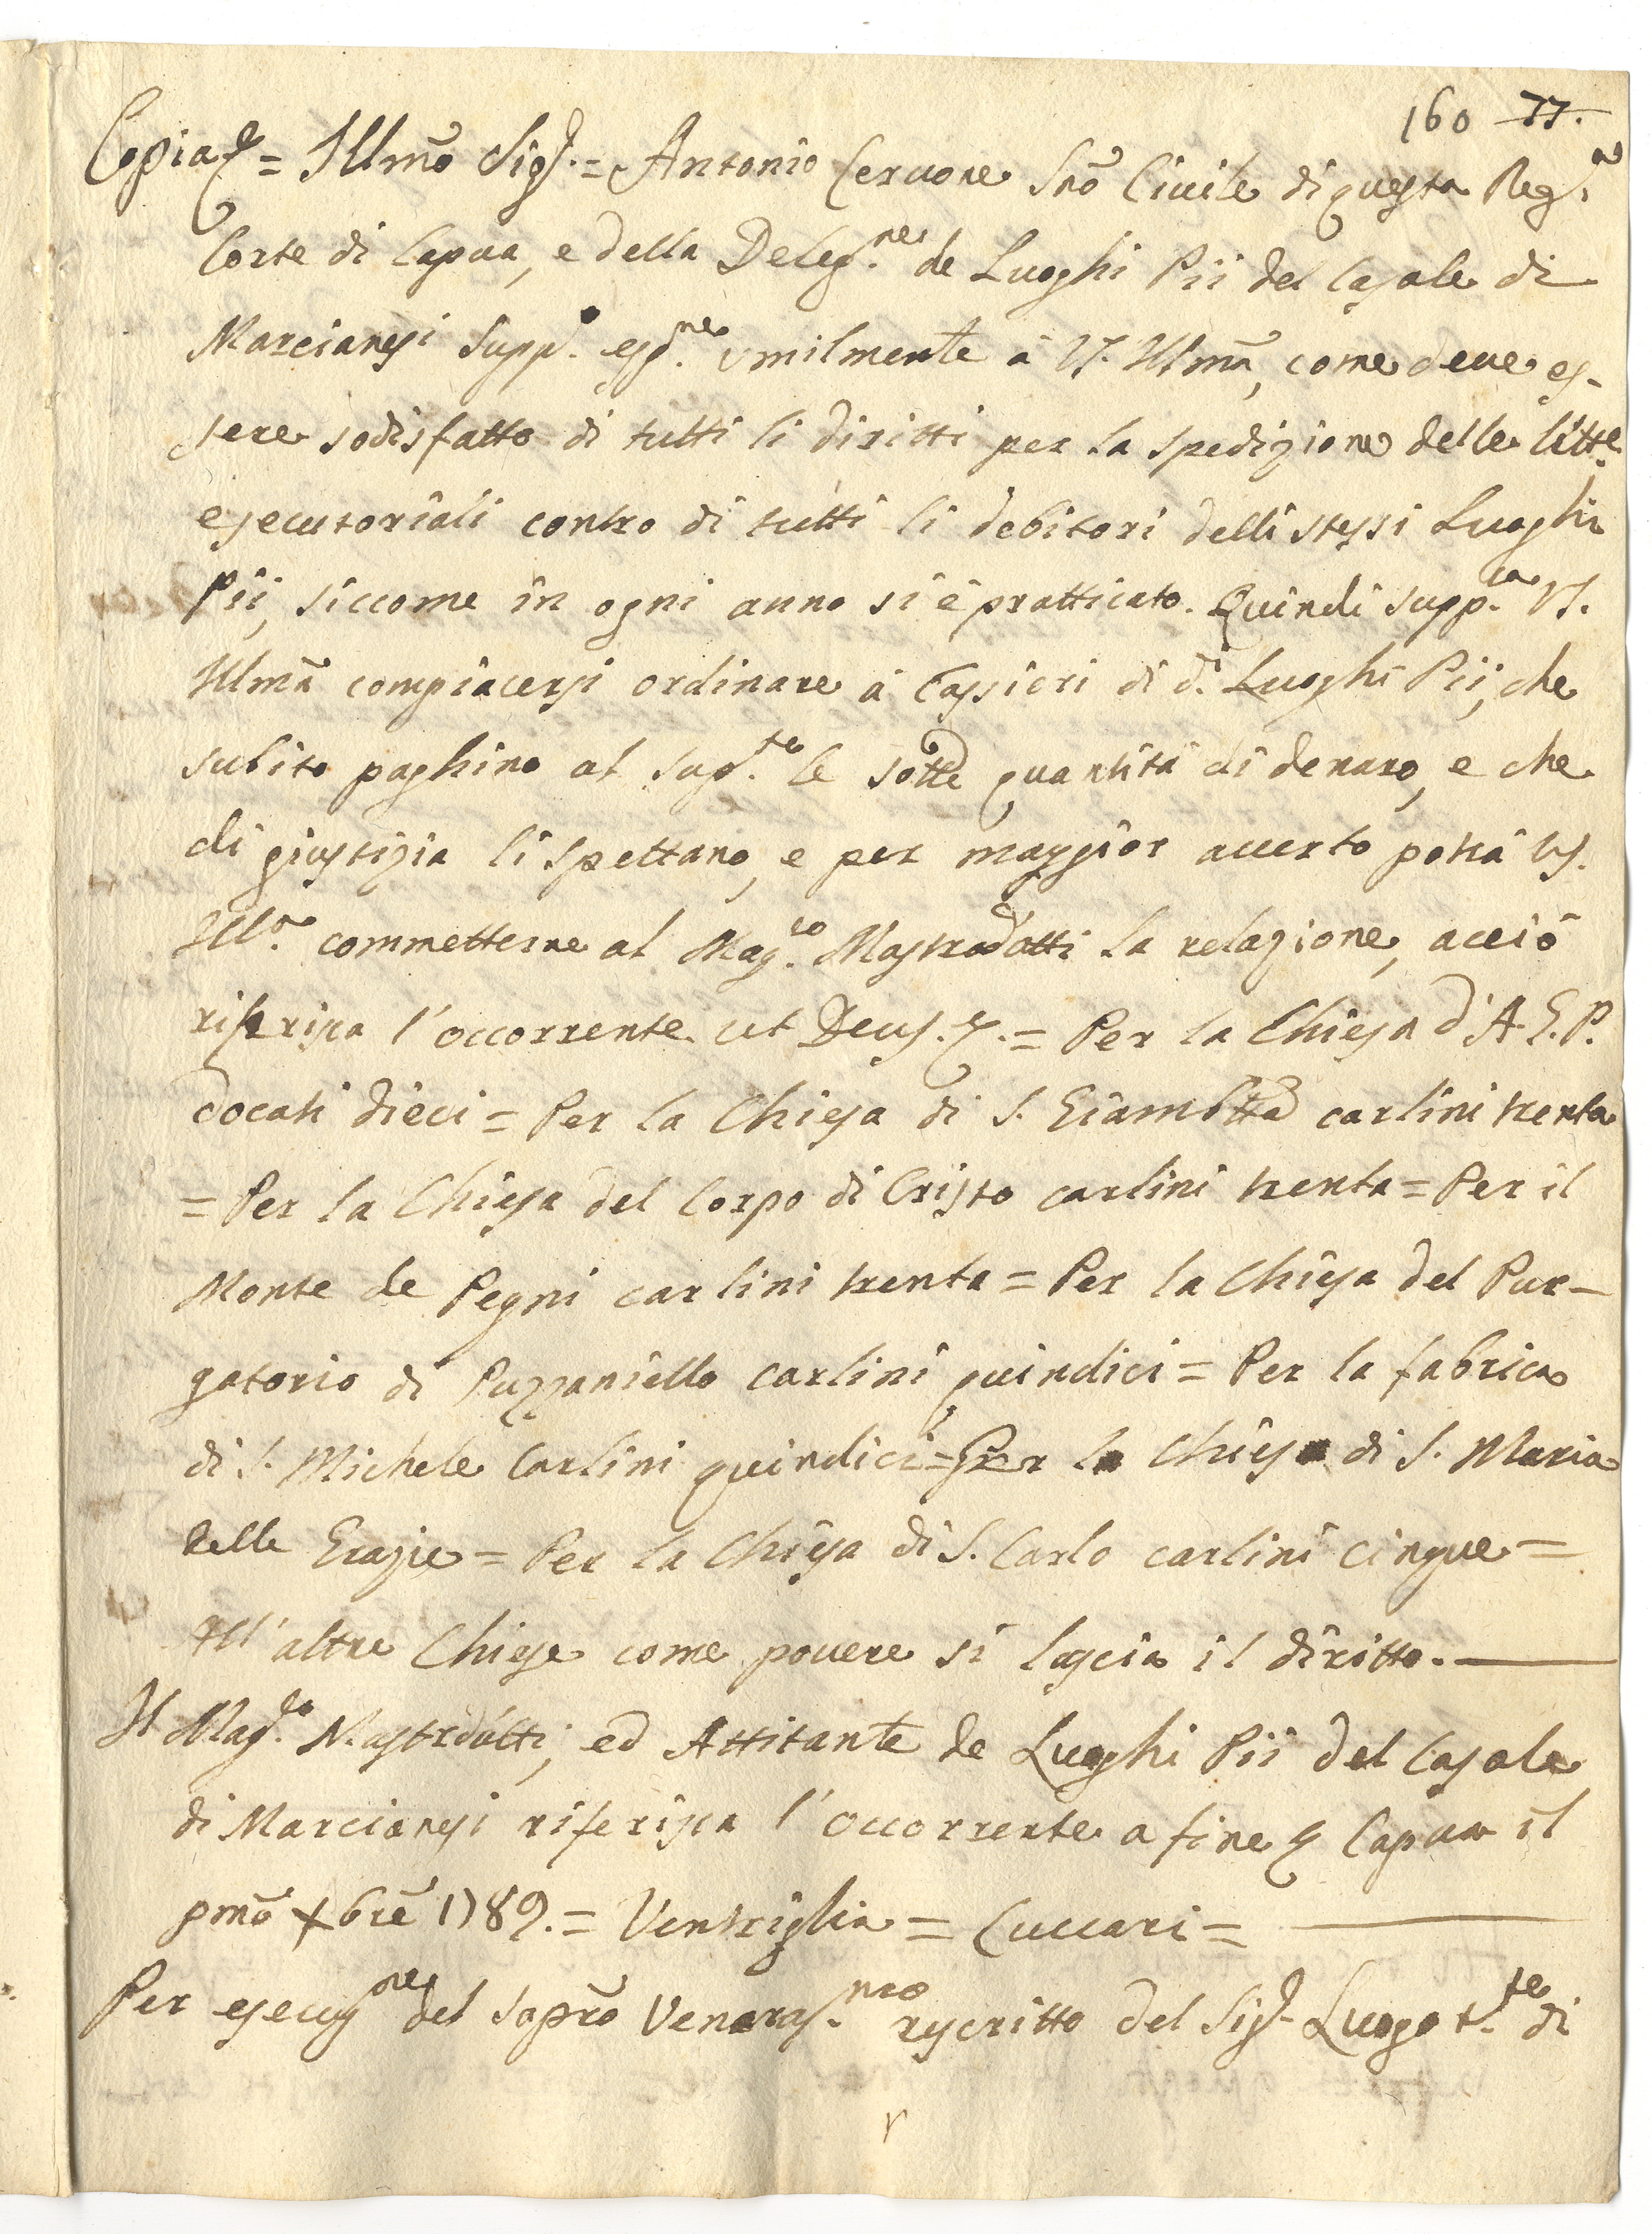 160 77.
Copia = Illmõ Sig.r = Antonio Cervone Sñõ Civile di questa Reg.a
Corte di Capua, e della Deleg.ne de Luoghi Pii del Casale di
Marcianisi supp.e esp.ne umilmente à V.S. Illmã, come deve es-
sere sodisfatto di tutti li diritti per la spedizione delle litt.e
esecutoriali contro di tutti li debitori delli stessi Luoghi
Pii, siccome in ogni anno si è pratticato. Quindi supp.ca V.S.
Illmã compiacersi ordinare à Cassieri di d.i Luoghi Pii, che
subito paghino al sup.te le sotte quantità di denaro, e che
di giustizia li spettano, e per maggior accerto potrà V.S.
Ill.a commetterne al Mag.co Mastrodatti la relazione, acciò
riferisca l'occorrente ut Deus. = Per la Chiesa d'A.G.P.
docati dieci = Per la Chiesa di S. Giambtta carlini trenta
= Per la Chiesa del Corpo di Cristo carlini trenta = Per il
Monte de Pegni carlini trenta = Per la Chiesa del Pur-
gatorio di Puzzaniello carlini quindici = Per la fabrica
di S. Michele Carlini quindici = Per la Chiesa di S. Maria
delle Grazie = Per la Chiesa di S. Carlo carlini cinque =
All'altre Chiese come povere si lascia il diritto.
Il Mag.co Mastrodatti, ed Attitante de Luoghi Pii del Casale
di Marcianisi riferisca l'occorrente a fine Capua il
pmõ Xbrẽ 1789. = Ventriglia = Cuccari =
Per esecuz.ne del sapr̃o Veneras.mo rescritto del Sig.r Luogot.te di